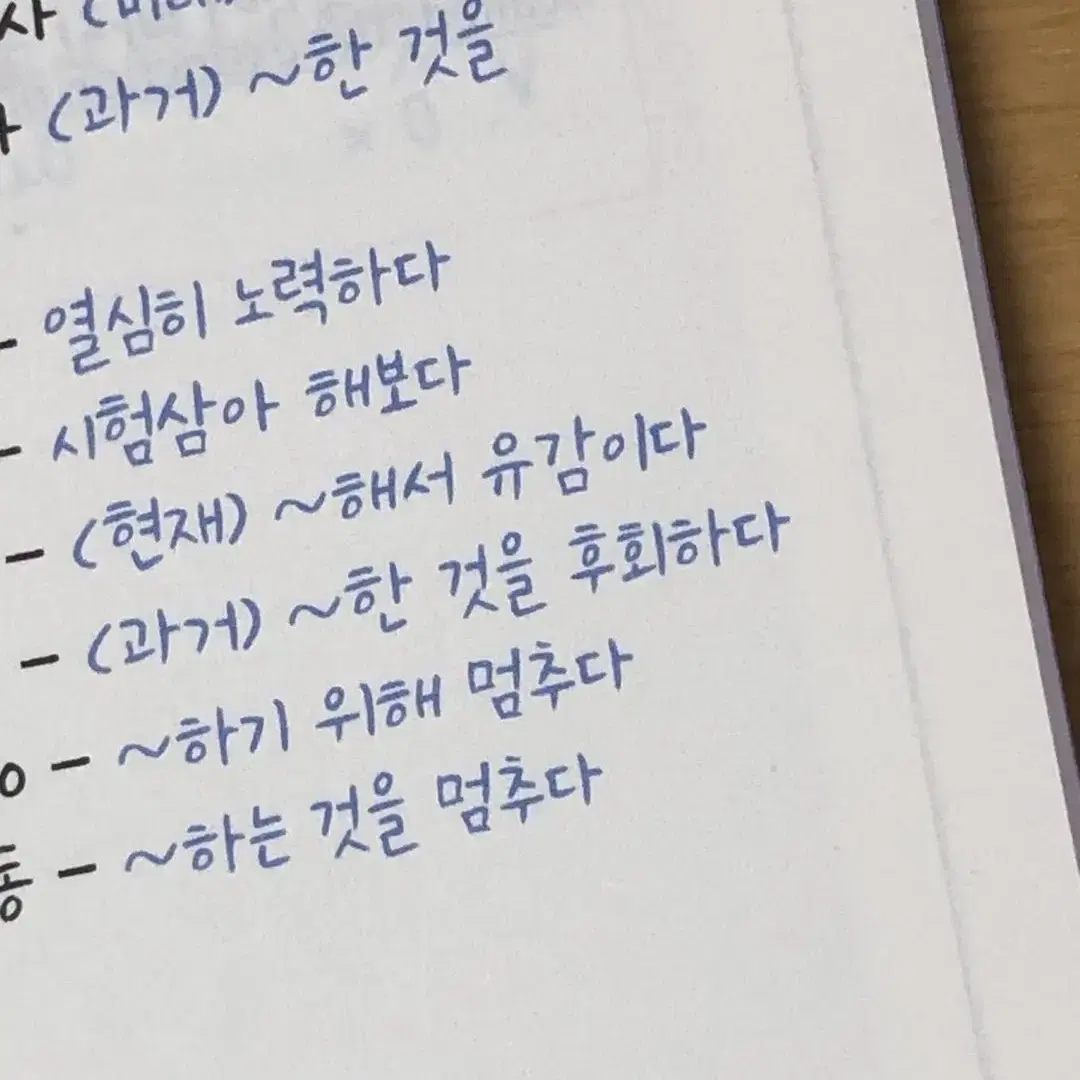 (과거) ~한 것을
- 열심히 노력하다
- 시험삼아 해보다
- (현재) ~해서 유감이다
- (과거) ~한 것을 후회하다
- ~하기 위해 멈추다
- ~하는 것을 멈추다